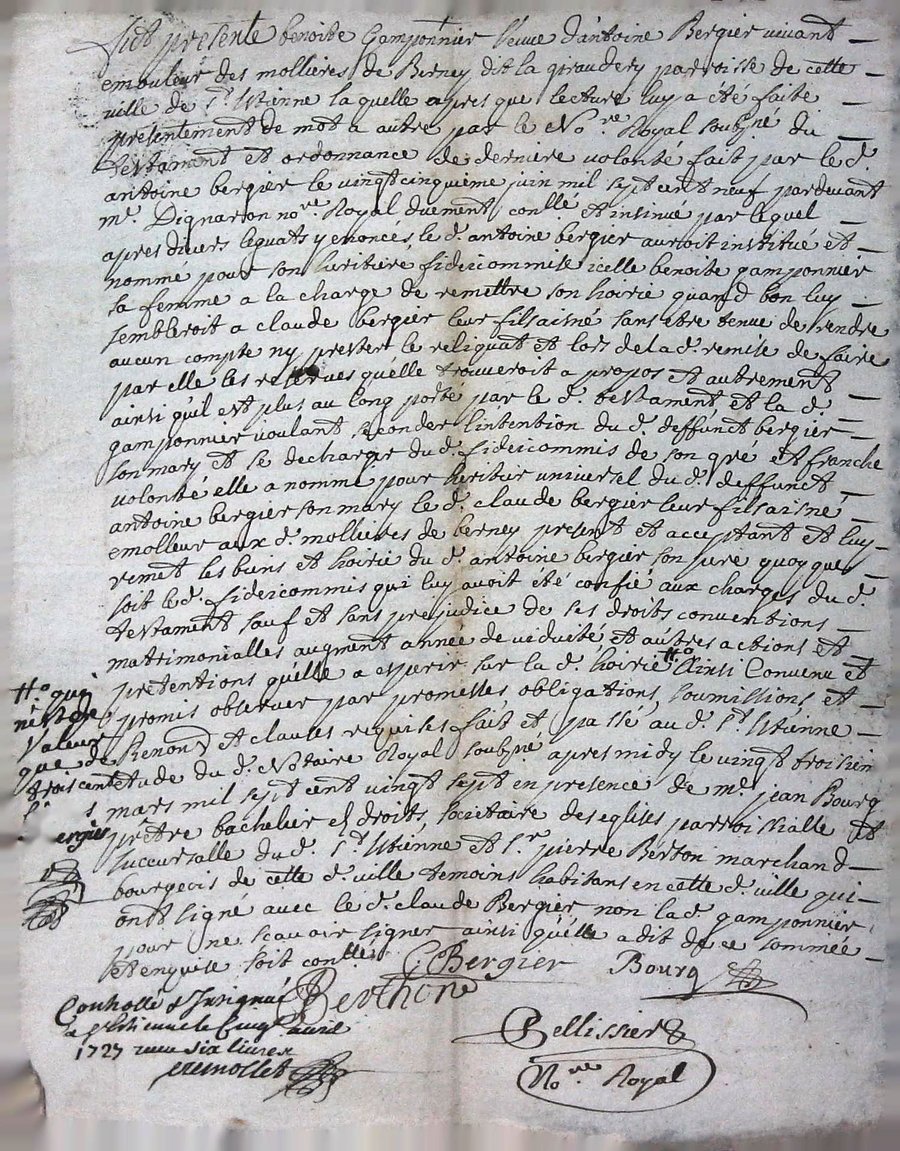 fust presente benoite Gamponnier veuve d'antoine Bergier vivant
emouleur des mollieres de Berney dit la giraudery parroisse de cette
ville de St. Etienne laquelle apres que lecture luy a été faite
presentement de mot a autre par le Nore. Royal soubné du
testament et ordonnance de derniere volonté fait par le d.
antoine bergier le vingt cinquieme juin mil sept cent neuf pardevant
me. Dignaron nore. Royal duement conllé et insinué par lequel
apres divers leguats y enoncés, le d. antoine bergier auroit institué et
nommé pour son heritiere fideicommise icelle benoite gamponnier
sa femme a la charge de remettre son hoirie quand bon luy
sembleroit a claude bergier leur fils aisné sans etre tenue de rendre
aucun compte ny prester le reliquat et lors de la d. remise de faire
par elle les reserves qu'elle trouveroit a propos et autrement
ainsi qu'il est plus au long porté par le d. testament et la d.
gamponnier voulant seconder l'intention du d. deffunct bergier
son mary et se decharger du d. fideicommis de son gré et franche
volonté elle a nommé pour heritier universel du d. deffunct
antoine bergier son mary le d. claude bergier leur fils aisné
emolleur aux d. mollieres de berney present et acceptant et luy
remet les biens et hoirie du d. antoine bergier son pere quoy que
soit le d. fideicommis qui luy avoit été confié aux charges du d.
testament sauf et sans prejudice de ses droits conventions
matrimonialles augment année de viduité et autres actions et
pretentions qu'elle a esperer sur la d. hoirie #o Ainsi Convenu et
promis observer par promesses obligations, soumissions, et
Renon d et clauses requises fait et passé au d. St. Etienne
etude du d. Notaire Royal soubné apres midy le vingt troisiem
mars mil sept cent vingt sept en presence de me. jean Bourg
prêtre bachelier es droits, socitaire des eglises parroissialle et
succursalle du d. St. Etienne et sr. pierre Berton marchand
bourgeois de cette d. ville temoins habitans en cette d. ville qui
ont signé avec le d. claude Bergier non la d. gamponnier
pour ne scavoir signer ainsi qu'elle a dit de ce sommée
et enquise soit conllé
#o qui
n'est de
Valeur
que de
trois cent
l.
ergier
C Bergier Bourg
Berthon
Conhollé & Insignué
a St. Etienne le Cinq avril
1727 receu six livres
Bellissier
Nore Royal